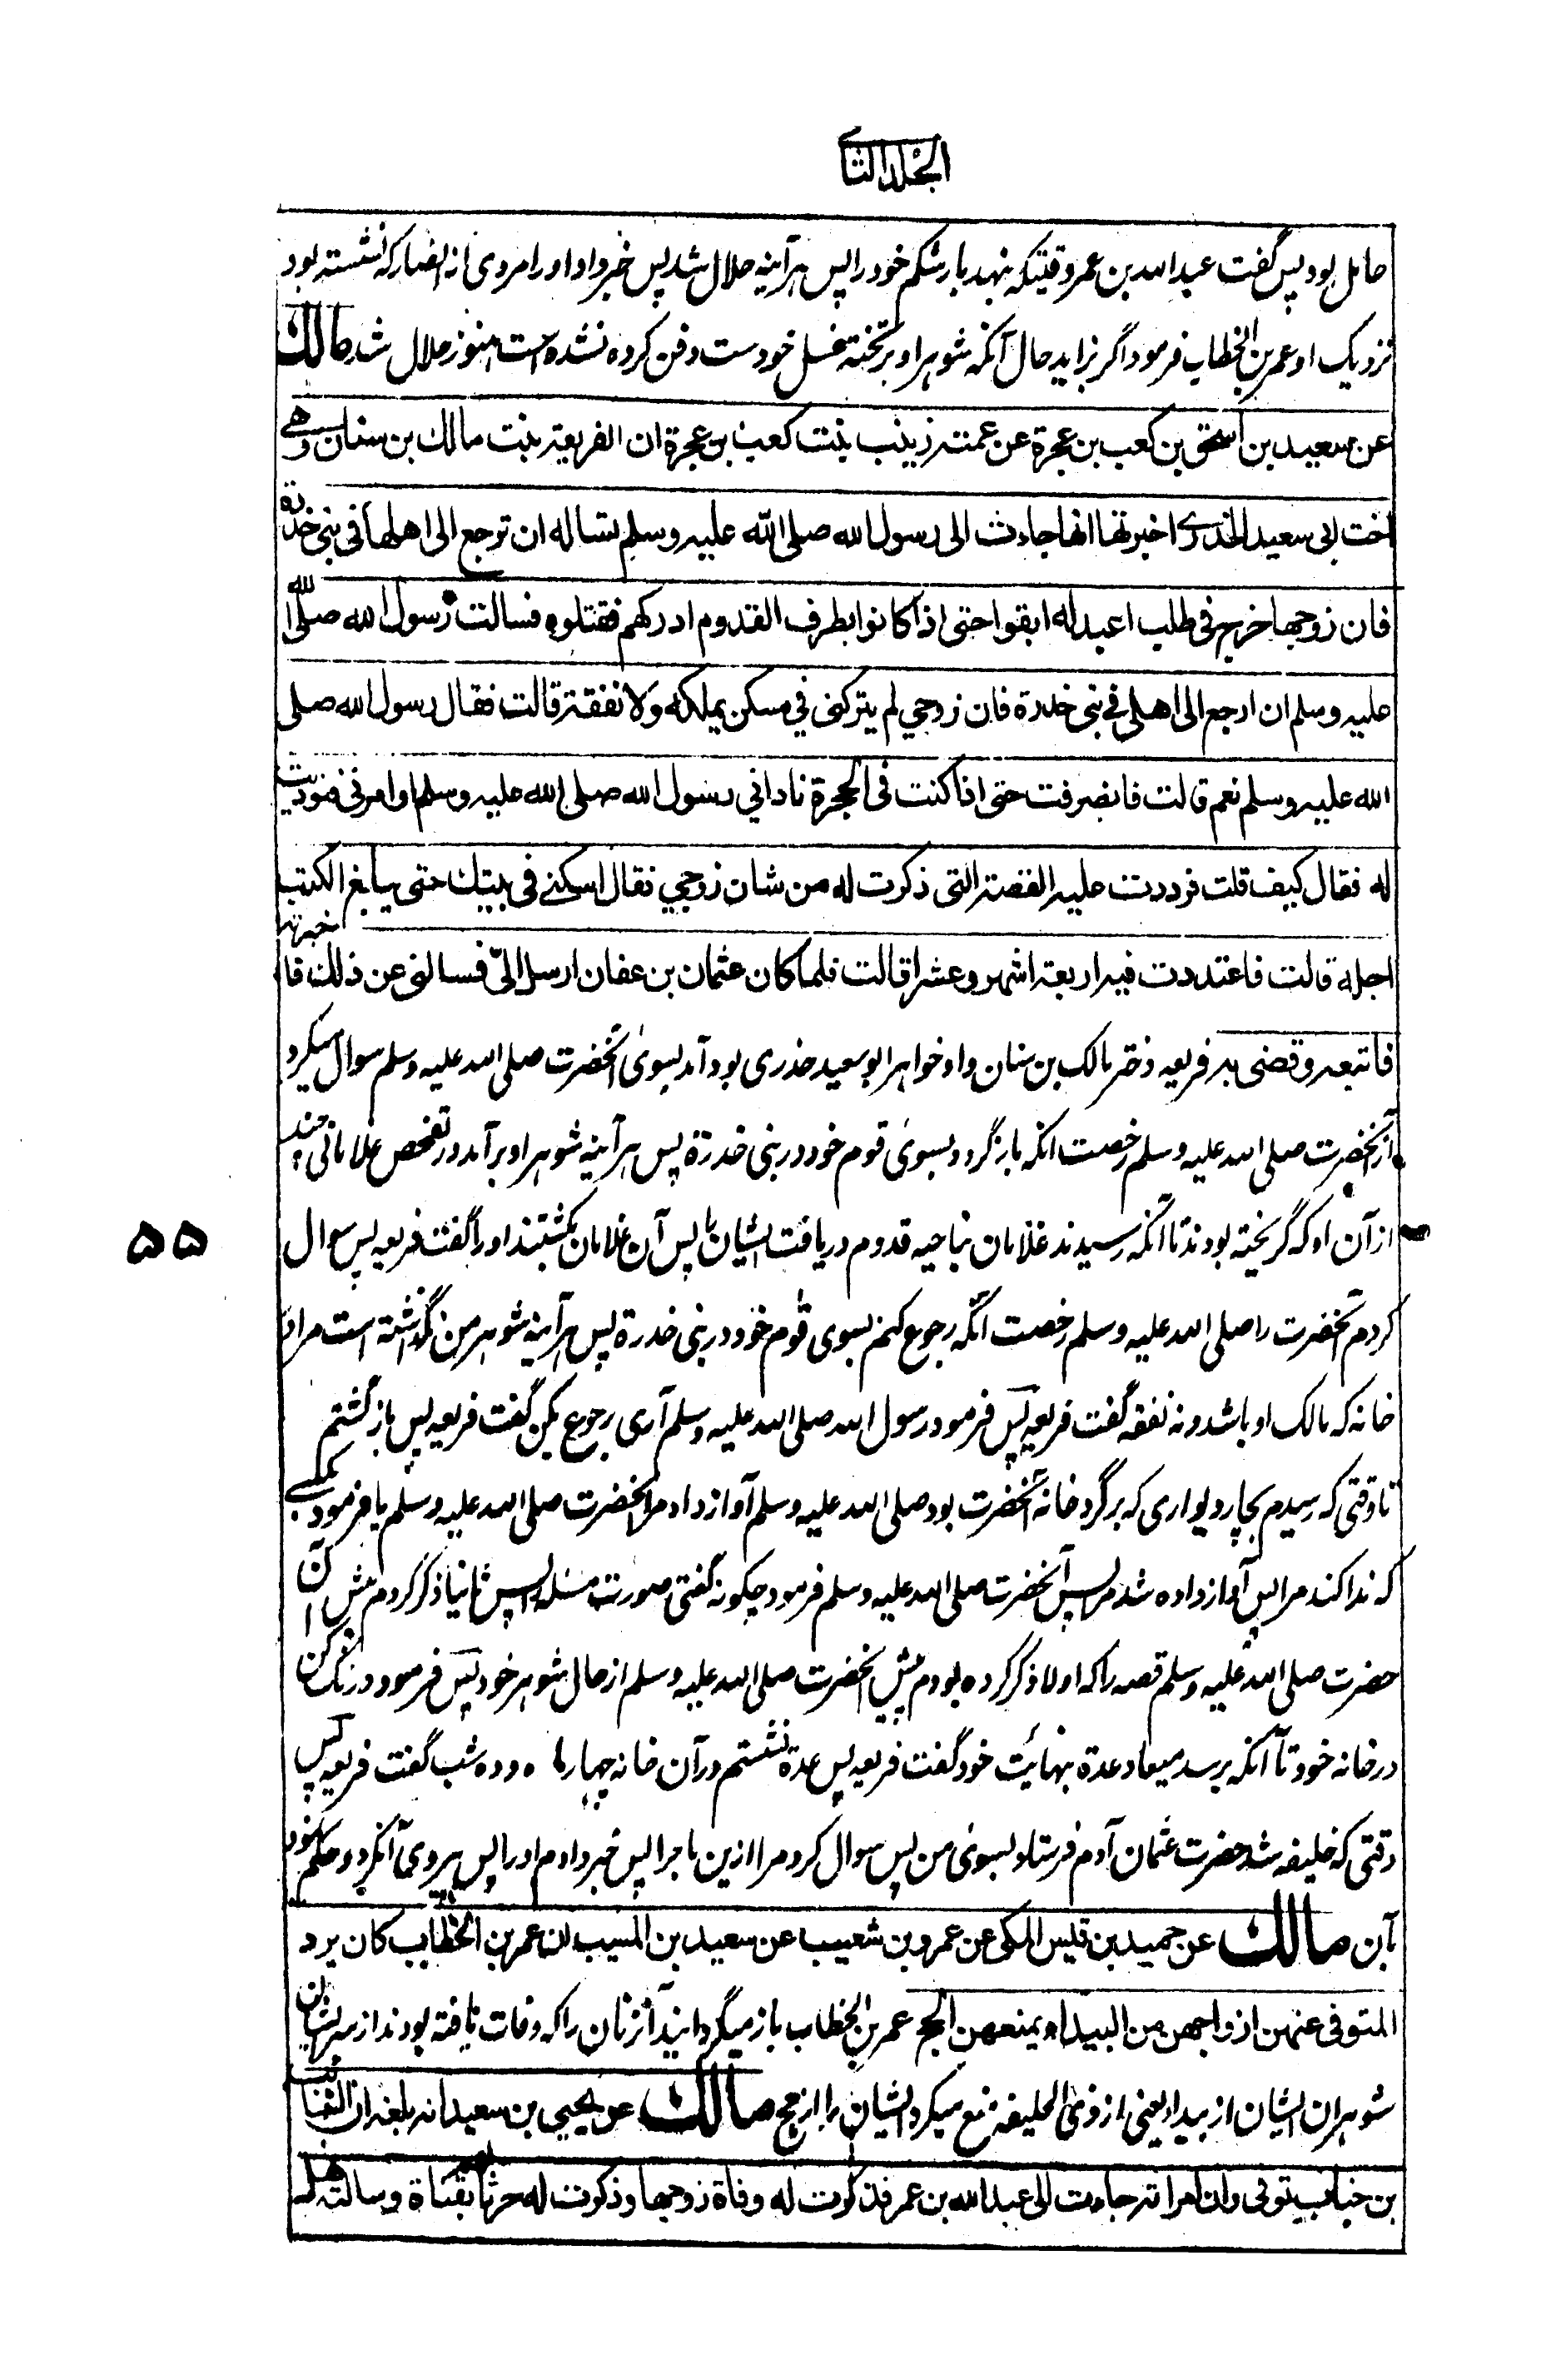 الجلد الثانی
حامل بود پس گفت عبد الله بن عمر وقتیکه نهد بار شکم خود را پس هر آینه حلال شد پس خبر داد او را مردی از انصار که نشسته بود
نزدیک او عمر بن الخطاب فرمود اگر بزاید حال آنکه شوهر او بر تخته غسل خود ست دفن کرده نشده است هنوز حلال شد مالك
عن سعيد بن اسحق بن كعب بن عجرة عن عمته زينب بنت كعب بن عجرة ان الفريعة بنت مالك بن سنان وهي
اخت ابي سعيد الخدري اخبرتها انها جاءت الى رسول الله صلى الله عليه وسلم تساله ان ترجع الى اهلها في بني خدرة
فان زوجها خرج في طلب اعبد له ابقوا حتى اذا كانوا بطرف القدوم ادركهم فقتلوه فسالت رسول الله صلى الله
عليه وسلم ان ارجع الى اهلي في بني خدرة فان زوجي لم يتركني في مسكن يملكه ولا نفقة قالت فقال رسول الله صلى
الله عليه وسلم نعم قالت فانصرفت حتى اذا كنت في الحجرة ناداني رسول الله صلى الله عليه وسلم او امر بي فنوديت
له فقال كيف قلت فرددت عليه القصة التي ذكرت له من شان زوجي فقال اسكني في بيتك حتى يبلغ الكتب
اجله قالت فاعتددت فيه اربعة اشهر وعشرا قالت فلما كان عثمان بن عفان ارسل اليّ فسالني عن ذلك فاخبرته
فاتبعه وقضى به فریعه دختر مالک بن سنان و او خواهر ابو سعید خدری بود آمد بسوی آنحضرت صلی الله علیه وسلم سوال میکرد
از آنحضرت صلی الله علیه وسلم رخصت آنکه باز گردد بسوی قوم خود در بنی خدرة پس هر آینه شوهر او برآمد در تفحص غلامانی چند
از آن او که گریخته بودند تا آنکه رسیدند غلامان بناحیه قدوم دریافت ایشان را پس آن غلامان بکشتند او را گفت فریعه پس سوال
کردم آنحضرت را صلی الله علیه وسلم رخصت آنکه رجوع کنم بسوی قوم خود در بنی خدرة پس هر آینه شوهر من نگذاشته است مرا در
خانه که مالک او باشد و نه نفقه گفت فریعه پس فرمود رسول الله صلی الله علیه وسلم آری رجوع بکن گفت فریعه پس باز گشتم
تا وقتی که رسیدم بچار دیواری که بر گرد خانه آنحضرت بود صلی الله علیه وسلم آواز داد مرا آنحضرت صلی الله علیه وسلم یا فرمود بکسی
که ندا کند مرا پس آواز داده شد مرا پس آنحضرت صلی الله علیه وسلم فرمود چگونه گفتی صورت مسئله پس ثانیا ذکر کردم پیش آن
حضرت صلی الله علیه وسلم قصه را که اولا ذکر کرده بودم پیش آنحضرت صلی الله علیه وسلم از حال شوهر خود پس فرمود درنگ کن
در خانه خود تا آنکه برسد میعاد عدة بنهایت خود گفت فریعه پس عدة نشستم در آن خانه چهار ماه و ده شب گفت فریعه پس
وقتی که خلیفه شد حضرت عثمان آدم فرستاد بسوی من پس سوال کرد مرا ازین ماجرا پس خبر دادم او را پس پیروی آن کرد و حکم نمود
بآن مالك عن حميد بن قيس المكي عن عمرو بن شعيب عن سعيد بن المسيب ان عمر بن الخطاب كان يرد
المتوفى عنهن ازواجهن من البيداء ويمنعهن الحج عمر بن الخطاب باز میگردانید آن زنان را که وفات یافته بودند از سر ایشان
شوهران ایشان از بیدا یعنی از ذی الحلیفه منع میکرد ایشان را از حج مالك عن يحيى بن سعيد انه بلغه ان السائب
بن خباب توفي وان امراته جاءت الى عبد الله بن عمر فذكرت له وفاة زوجها وذكرت له حرثا لهم بقناة وسالته هل
۵۵